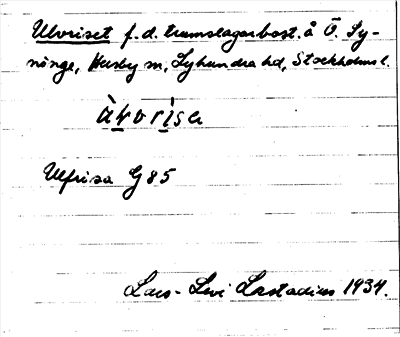 Ulvriset f. d. trumslagarbost. å Ö. Sy-
ninge, Husby sn, Lyhundra hd, Stockholms l.
Ulfrisa G 85
Lars-Levi Læstadius 1934.